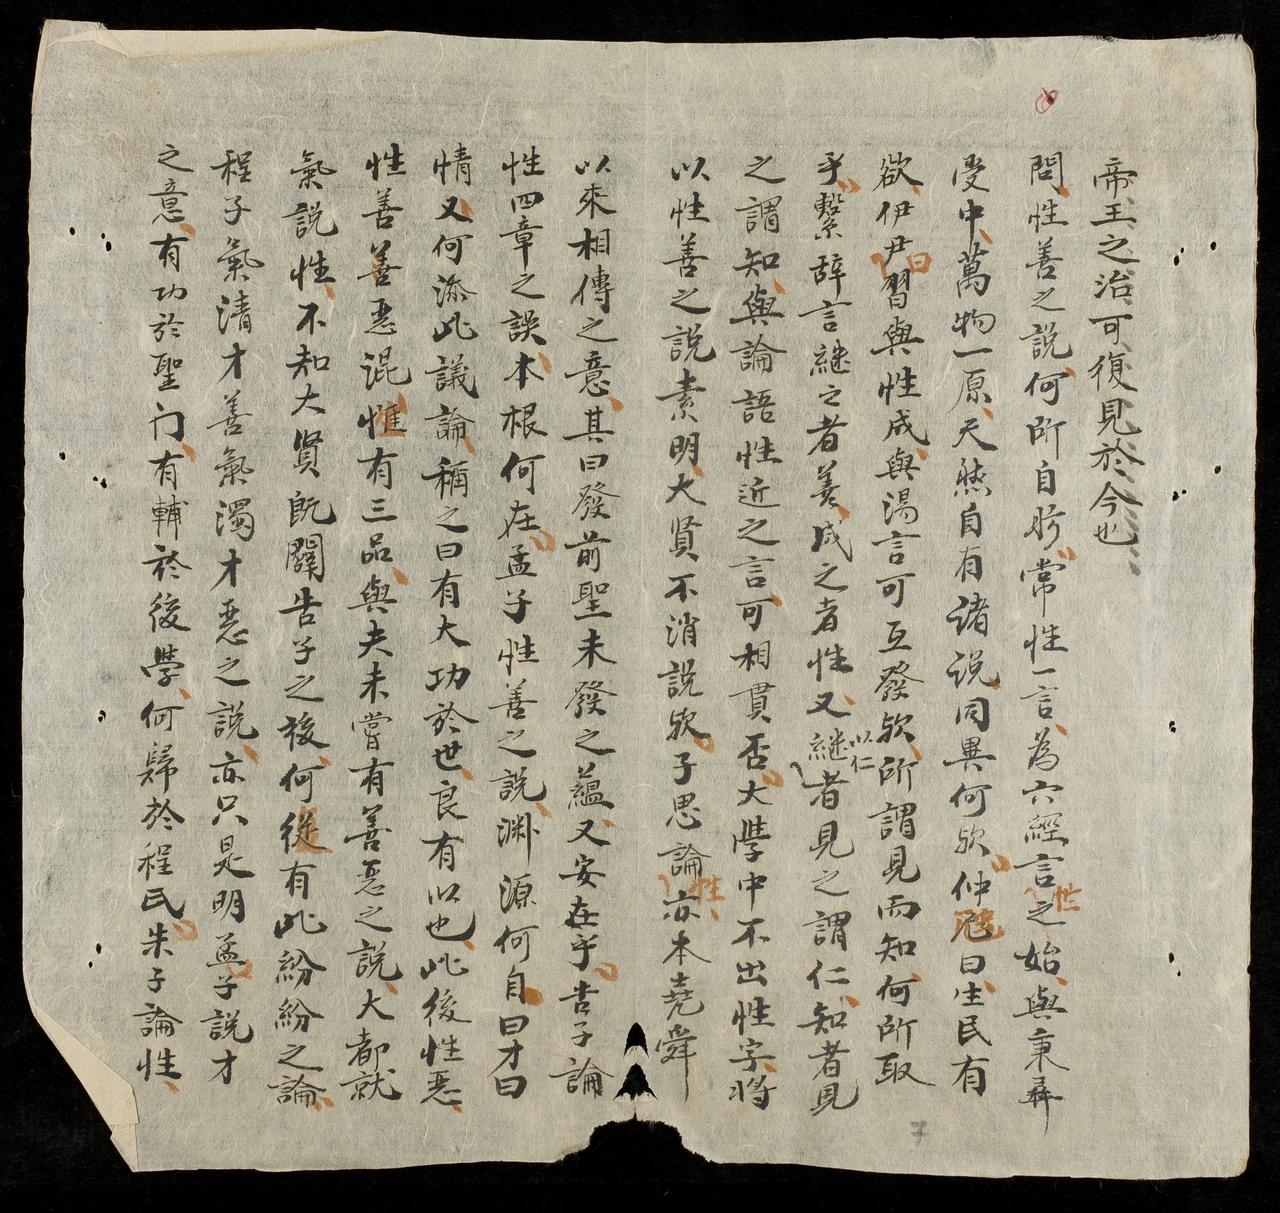 帝王之治可復見於今也
問性善之說何所自昉常性一言為六經言性之始與秉彝
受中萬物一原天然自有諸說同異何欤仲虺曰生民有
欲伊尹曰習與性成與湯言可互發欤所謂見而知何所取
乎繫辭言繼之者善成之者性又繼以仁者見之謂仁知者見
之謂知與論語性近之言可相貫否大學中不出性字將
以性善之說素明大賢不消說欤子思論性亦本堯舜
以來相傳之意其曰發前聖未發之蘊又安在乎告子論
性四章之誤本根何在孟子性善之說淵源何自曰才曰
情又何添此議論稱之曰有大功於世良有以也此後性惡
性善善惡混惟有三品與夫未嘗有善惡之說大都就
氣說性不知大賢既闢告子之後何從有此紛紛之論
程子氣清才善氣濁才惡之說亦只是明孟子說才
之意有功於聖门有輔於後學何歸於程氏朱子論性